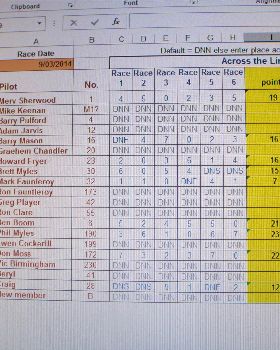 Clipboard Font
fx
A B C D E F G H I
Race Date Default = DNN else enter place ac
9/03/2014 Across the Li
Race Race Race Race Race Race
Pilot No. 1 2 3 4 5 6 point
Merv Sherwood 1 4 5 2 3 5 19
Mike Keenan M17 DNN DNN DNN DNN DNN DNN
Barry Pulford 4 DNN DNN DNN DNN DNN DNN
Adam Jarvis 12 DNN DNN DNN DNN DNN DNN
Barry Mason 16 DNF 4 7 3 16
Graehem Chandler 20 DNN DNN DNN DNN DNN DNN
Howard Fryer 23 2 6 1 4 16
Brett Myles 30 6 5 4 DNS DNS 15
Mark Fauntleroy 32 1 1 DNF 4 1 7
Ron Fauntleroy 173 DNN DNN DNN DNN DNN DNN
Greg Player 42 DNN DNN DNN DNN DNN DNN
Jon Clare 55 DNN DNN DNN DNN DNN DNN
Len Boom 2 4 5 5 21
Phil Myles 190 6 1 6 7 23
Owen Cockerill 199 DNN DNN DNN DNN DNN DNN
Don Moss 172 7 3 2 3 7 22
Vic Birmingham 230 DNN DNN DNN DNN DNN DNN
41 DNN DNN DNN DNN DNN DNN
Craig 28 DNS DNS 1 DNF 2 12
new member DNN DNN DNN DNN DNN DNN